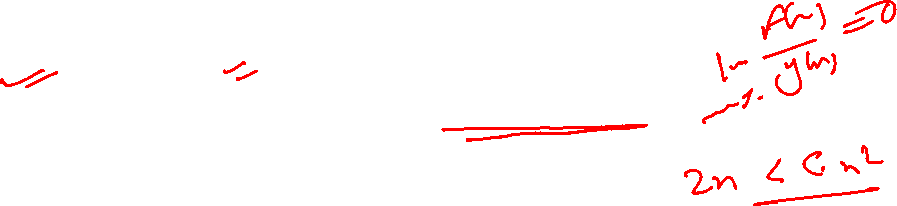 lim f(n)/g(n) = 0
2n < c n²